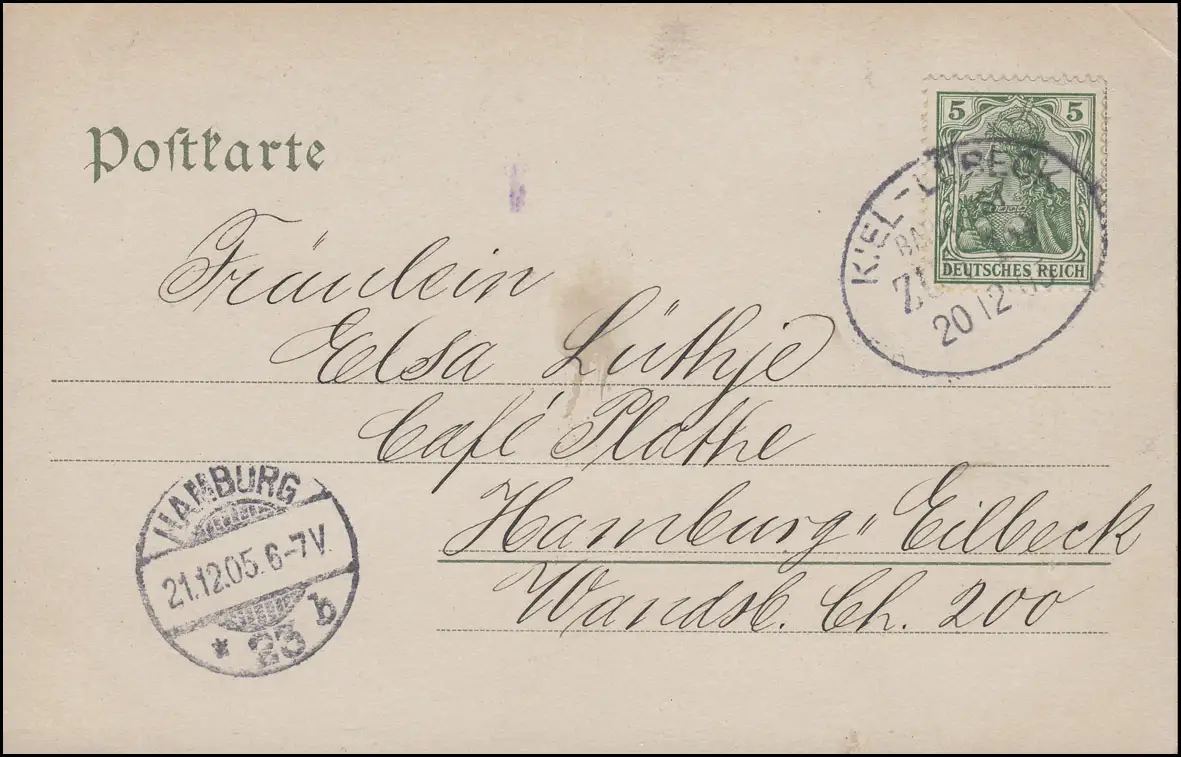 Postkarte
5 5
DEUTSCHES REICH
KIEL-LÜBECK
20 12 05
Fräulein
Elsa Lüthje
Café Plathe
Hamburg-Eilbeck
Wandsb. Ch. 200
HAMBURG
21.12.05. 6-7V.
* 23 b